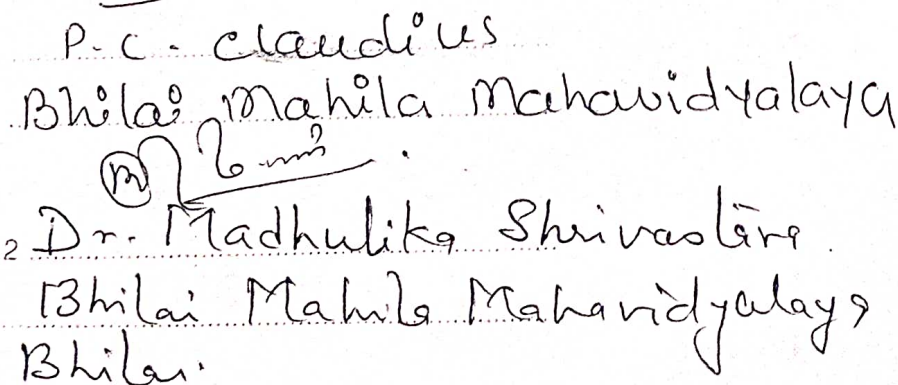 P.C. Claudius
Bhilai Mahila Mahavidyalaya
2 Dr. Madhulika Shrivastava.
Bhilai Mahila Mahavidyalaya
Bhilai.